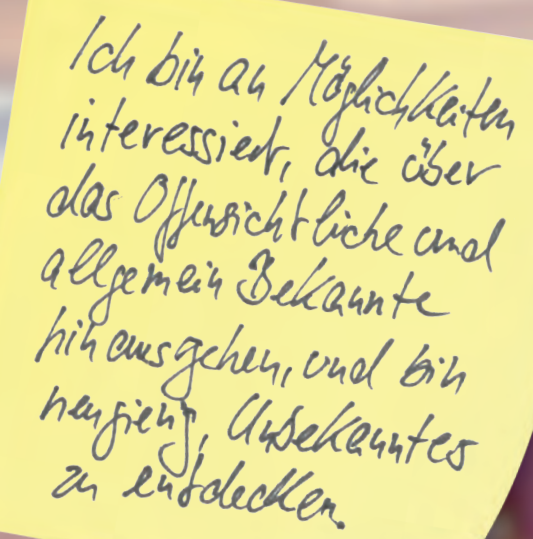 Ich bin an Möglichkeiten
interessiert, die über
das Offensichtliche und
allgemein Bekannte
hinausgehen, und bin
neugierig, Unbekanntes
zu entdecken.